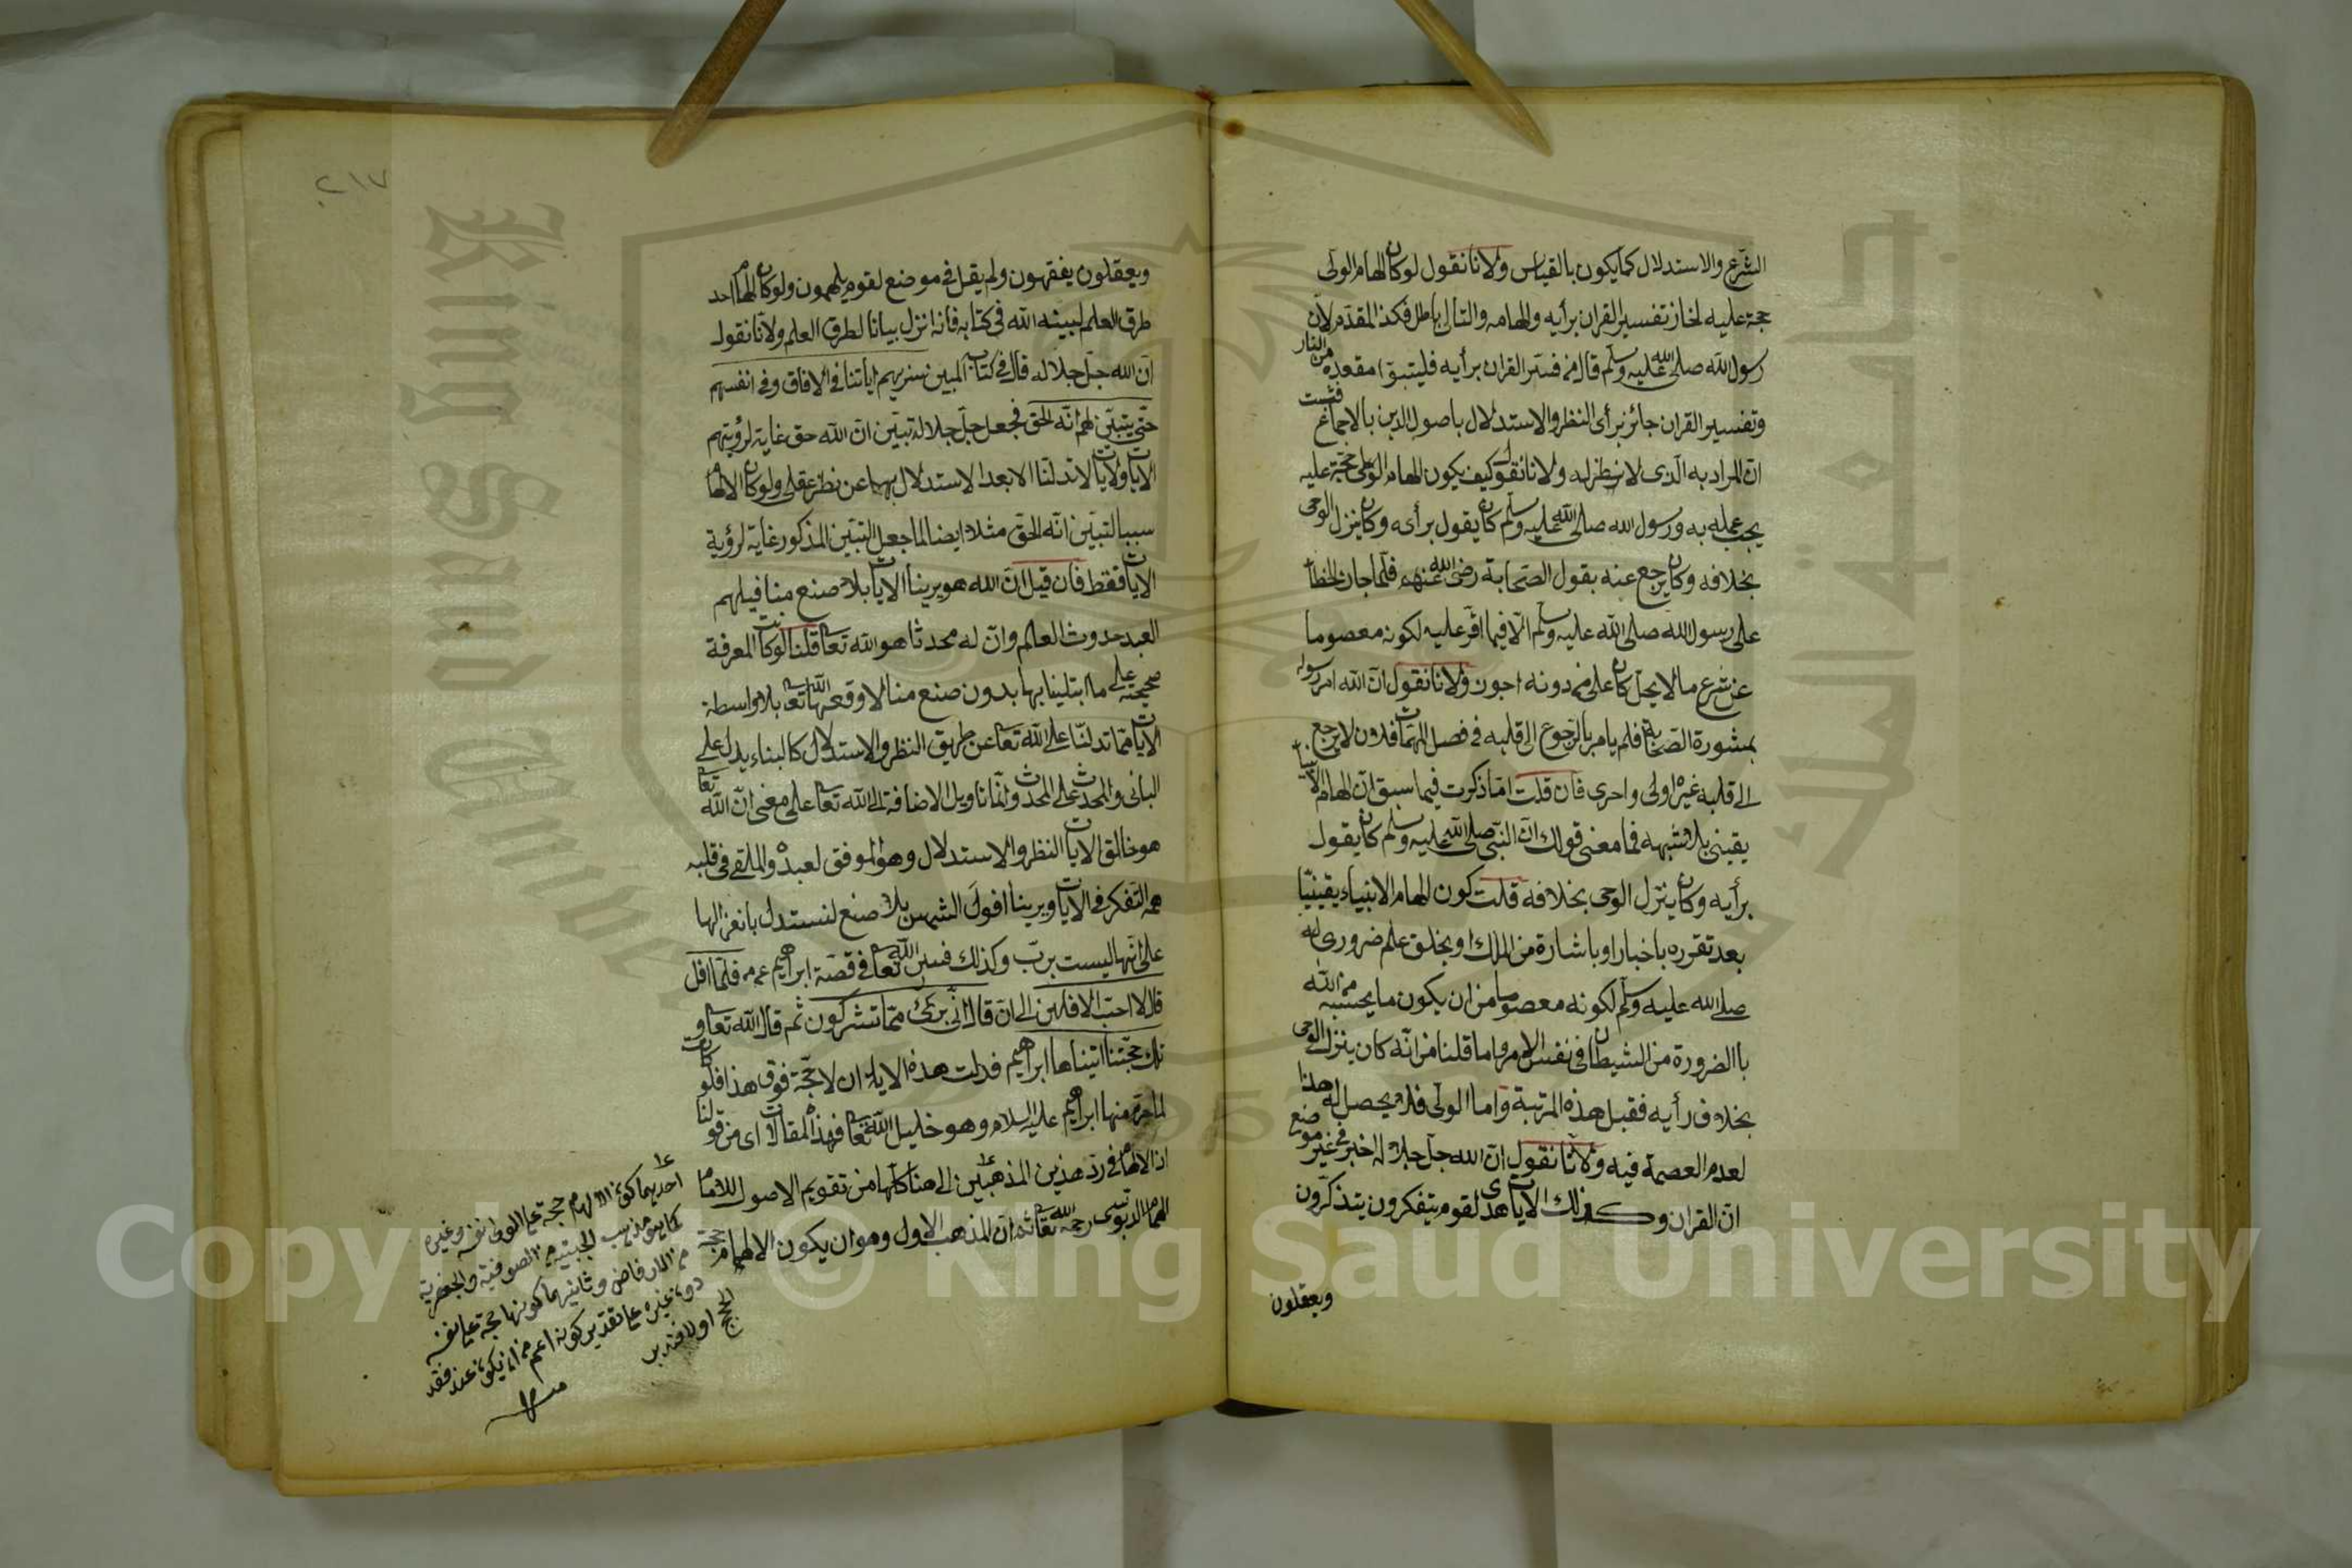 الشرع والاستدلال كما يكون بالقياس ولانا نقول لوكان الهام الولى
حجة عليه لجاز تفسير القران برأيه والهامه والتالى باطل فكذا المقدم لان
رسول الله صلى الله عليه وسلم قال من فسر القران برأيه فليتبوأ مقعده من النار
وتفسير القران جائز برأى النظر والاستدلال باصول الدين بالاجماع فثبت
ان المراد به الذى لا نظر له ولانا نقول كيف يكون الهام الولى حجة عليه
يجب عمله به ورسول الله صلى الله عليه وسلم كان يقول برأى وكان ينزل الوحى
بخلافه وكان يرجع عنه بقول الصحابة رضى الله عنهم فلما جاز الخطأ
على رسول الله صلى الله عليه وسلم الا فيما اقر عليه لكونه معصوما
عن شرع ما لا يحل كان على من دونه اجوز ولانا نقول ان الله امر رسوله
بمشورة الصحابة فلم يامر بالرجوع الى قلبه فى فصل المهمات فلان لا يرجع
الى قلبه غيره اولى واحرى فان قلت اما ذكرت فيما سبق ان الهام الانبياء
يقينى بلا شبهه فما معنى قولك ان النبى صلى الله عليه وسلم كان يقول
برأيه وكان ينزل الوحى بخلافه قلت كون الهام الانبياء يقينيا
بعد تقرره باخبار او باشارة من الملك او بخلق علم ضرورى له
صلى الله عليه وسلم لكونه معصوما من ان يكون ما يحسبه من الله
با الضرورة من الشيطان فى نفس الامر واما قلنا من انه كان ينزل الوحى
بخلاف رأيه فقبل هذه المرتبة واما الولى فلا يحصل له هذا
لعدم العصمة فيه ولانا نقول ان الله جل جلاله اخبر فى غير موضع
ان القران وكذلك الايات هدى لقوم يتفكرون يتذكرون
ويعقلون
٢١٧
ويعقلون يفقهون ولم يقل فى موضع لقوم يلهمون ولوكان الهام احد
طرق العلم لبينه الله فى كتابه فانه انزل بيانا لطرق العلم ولانا نقول
ان الله جل جلاله قال فى كتاب المبين سنريهم اياتنا فى الافاق وفى انفسهم
حتى يتبين لهم انه الحق فجعل جل جلاله تبين ان الله حق غاية لرؤيتهم
الايات والايات لا تدلنا الا بعد الاستدلال بها عن نظر عقلى ولوكان الالهام
سببا لتبين انه الحق مثلا ايضا لما جعل التبين المذكور غاية لرؤية
الايات فقط فان قيل ان الله هو يرينا الايات بلا صنع منا فيلهم
العبد حدوث العالم وان له محدثا هو الله تعالى قلنا لو كانت المعرفة
صحيحة على ما ابتلينا بها بدون صنع منا لاوقعها الله تعالى بلا واسطة
الايات مما تدلنا على الله تعالى عن طريق النظر والاستدلال كالبناء يدل على
البانى والمحدث على المحدث وانما تاويل الاضافة الى الله تعالى على معنى ان الله تعالى
هو خالق الايات النظر والاستدلال وهو الموفق لعبده والملقى فى قلبه
همه التفكر فى الايات ويرينا افول الشمس بلا صنع لنستدل بانعزالها
على انها ليست برب وكذلك فسر الله تعالى فى قصة ابراهيم عم فلما افل
قال لا احب الافلين الى ان قال انى برئ مما تشركون ثم قال الله تعالى و
تلك حجتنا اتيناها ابراهيم فدلت هذه الاية ان لا حجة فوق هذا فلو كانت
لما حرم منها ابراهيم عليه السلام وهو خليل الله تعالى فهذه المقالات اى من قولنا
اذ الالهام فى رد هذين المذهبين الى هنا كلها من تقويم الاصول للامام
الهمام الدبوسى رحمه الله تعالى ثم ان المذهب الاول وهو ان يكون الالهام حجة
احديهما كون الالهام حجة على الولى نفسه وغيره
كما هو مذهب الجبية من الصوفية والجعفرية
من الارفاض وثانيهما كونها حجة على نفسه
دون غيره على تقدير كونه اعم من ان يكون عند فقد
الحجج او لا فتدبر
منه